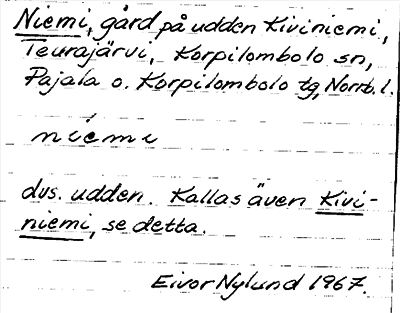 Niemi, gård på udden Kiviniemi,
Teurajärvi, Korpilombolo sn,
Pajala o. Korpilombolo tg, Norrb. l.
niémi
dvs. udden. Kallas även Kivi-
niemi, se detta.
Eivor Nylund 1967.